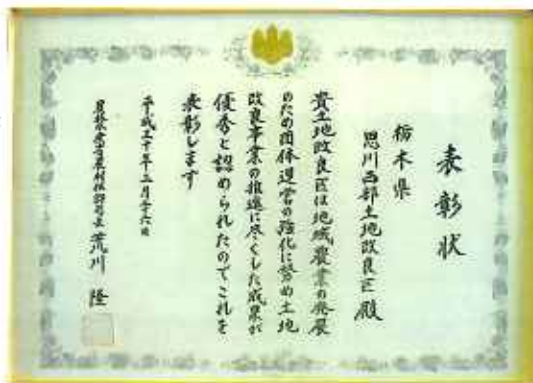 表彰状
栃木県
思川西部土地改良区殿
貴土地改良区は地域農業の発展
のため団体運営の強化に努め土地
改良事業の推進に尽くした成果が
優秀と認められたのでこれを
表彰します
平成三十年三月二十六日
農林水産省農村振興局長荒川隆